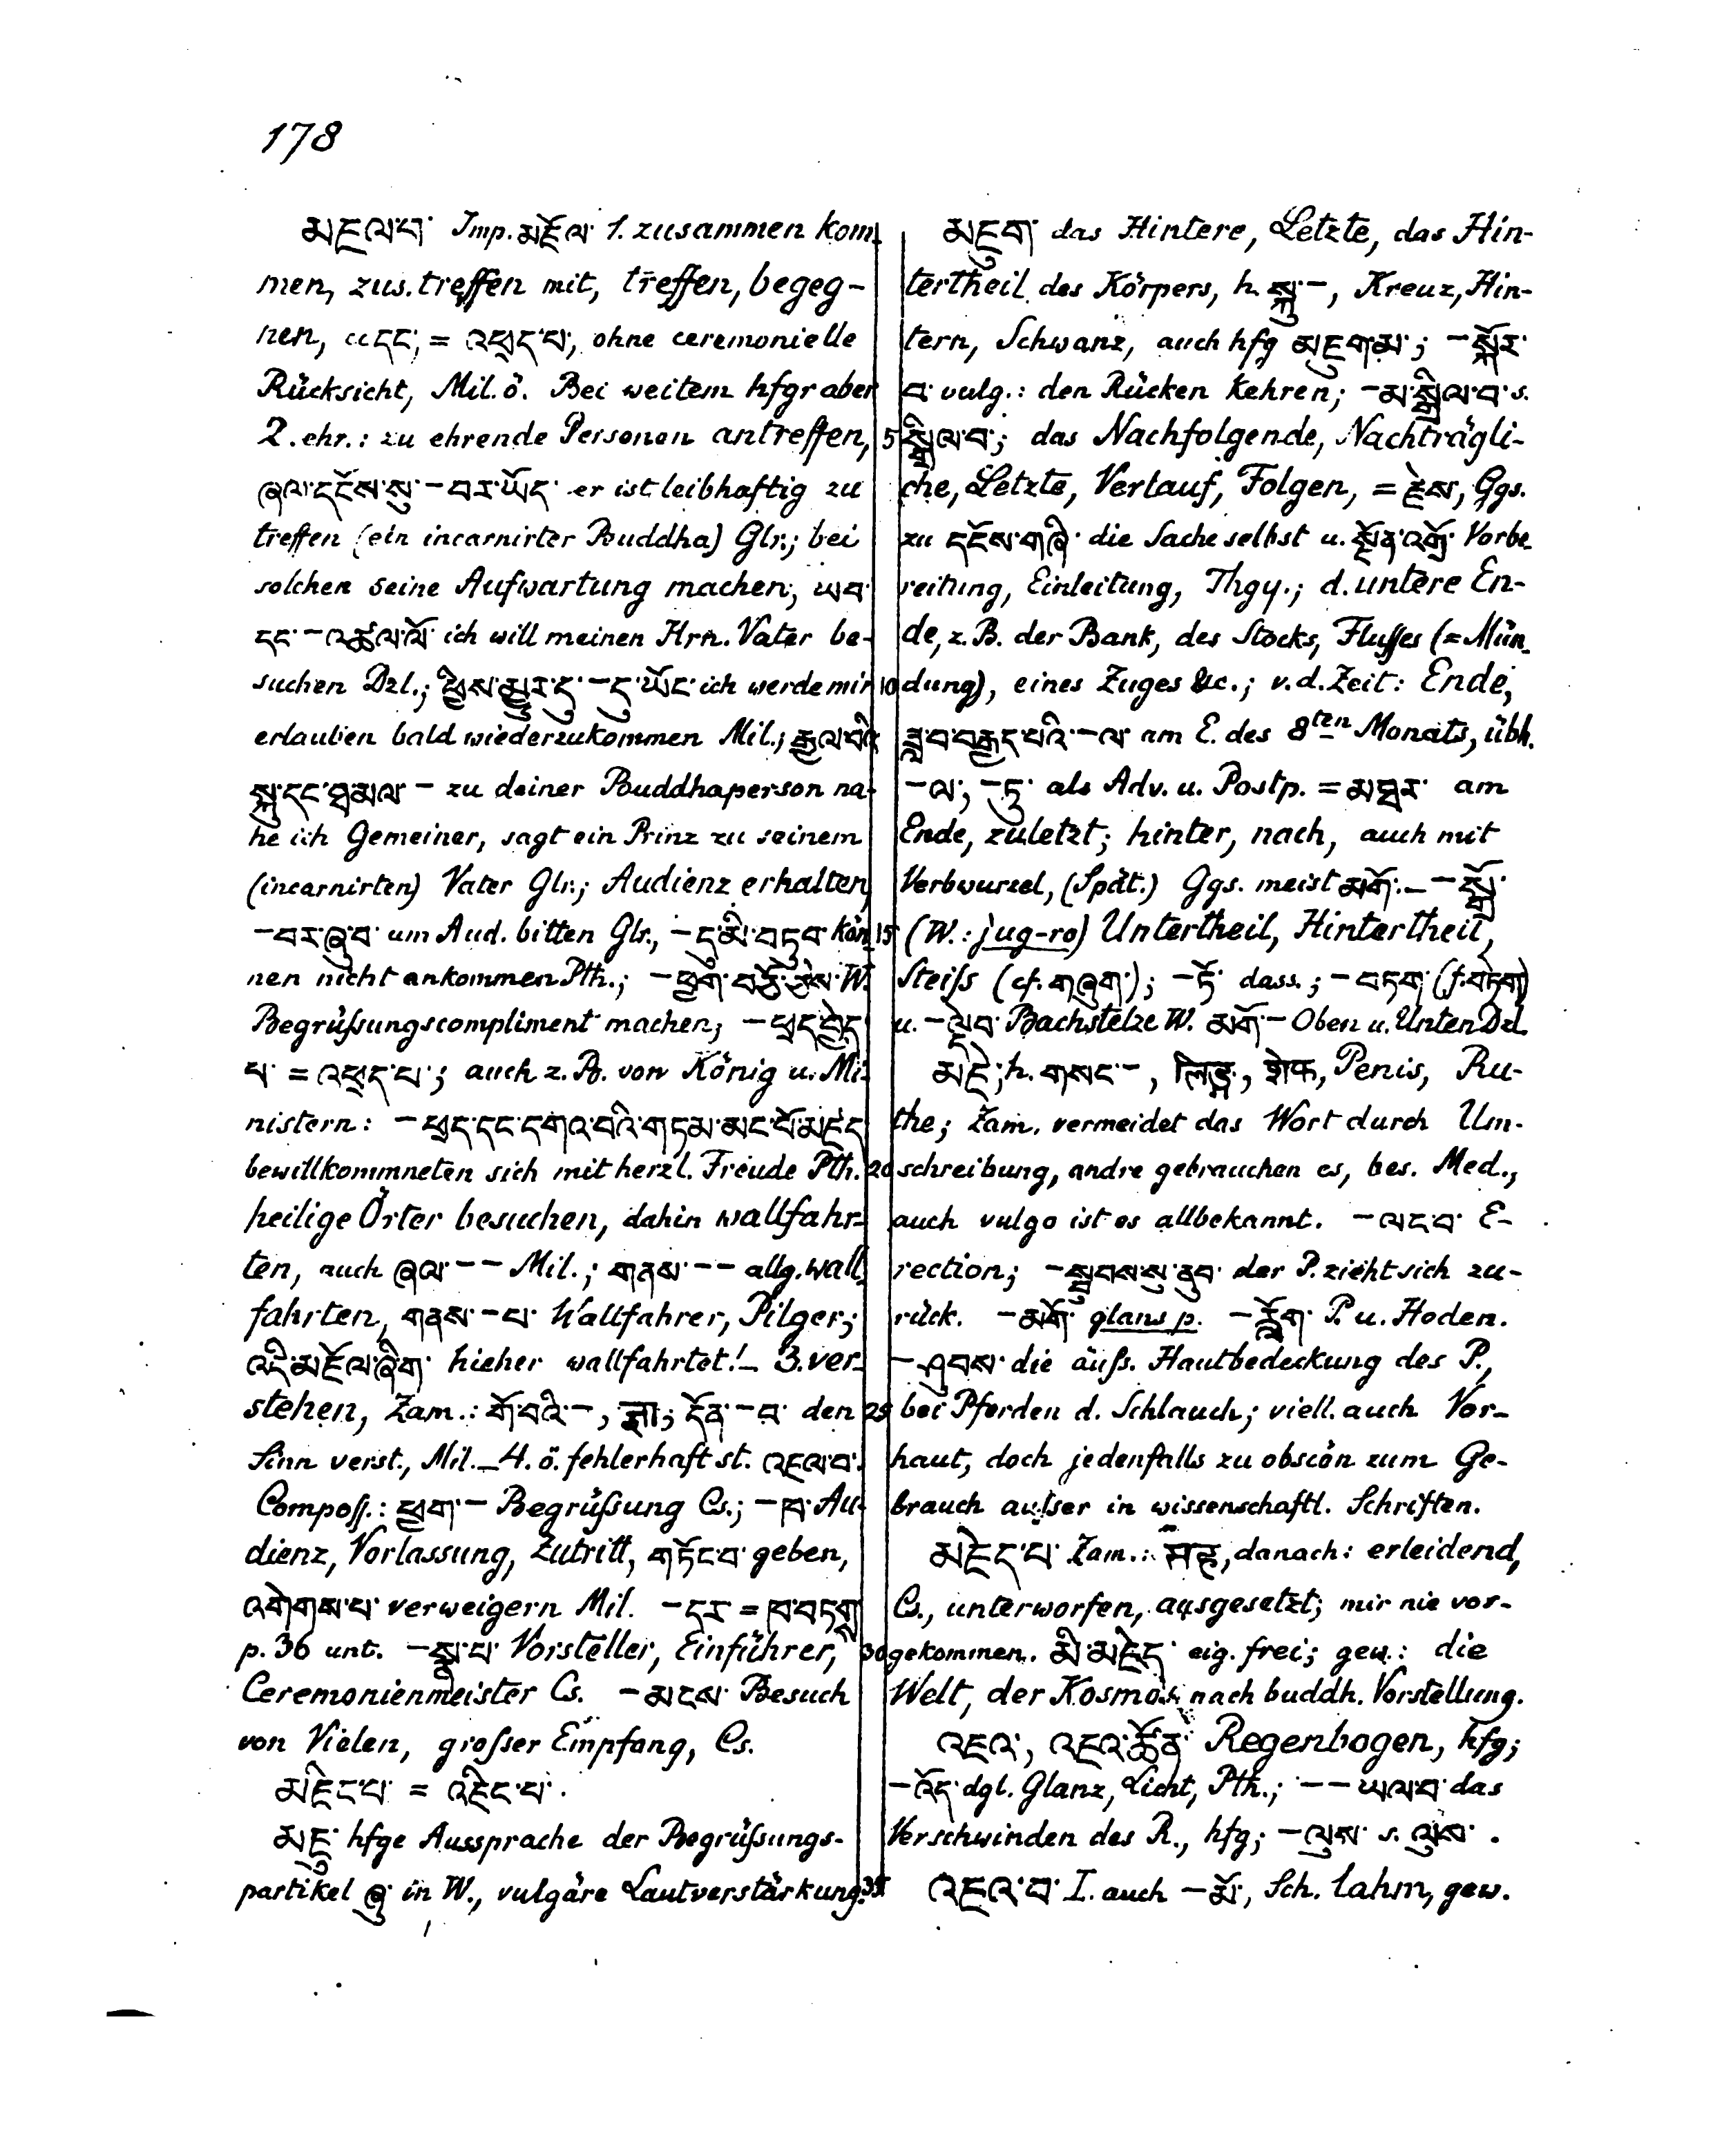 178
མཇལ་བ་ Imp. མཇོལ་ 1. zusammen kom-
men, zus. treffen mit, treffen, begeg-
nen, cc དང་, = འཕྲད་པ་, ohne ceremonielle
Rücksicht, Mil. ö. Bei weitem hfgr aber
2. ehr.: zu ehrende Personen antreffen,
ཞལ་དངོས་སུ་ – བར་ཡོད་ er ist leibhaftig zu
treffen (ein incarnirter Buddha) Glr.; bei
solchen seine Aufwartung machen, ཡབ་
དང་ – འཚལ་ལོ་ ich will meinen Hrn. Vater be-
suchen Dzl.; ཕྱིས་མྱུར་དུ་ – དུ་ཡོང་ ich werde mir
erlauben bald wiederzukommen Mil.; རྒྱལ་བའི་
སྐུ་དང་ཐམལ་ – zu deiner Buddhaperson na-
he ich Gemeiner, sagt ein Prinz zu seinem
(incarnirten) Vater Glr.; Audienz erhalten,
– བར་ཞུ་བ་ um Aud. bitten Glr., – དུ་མི་བཏུབ་ kön-
nen nicht ankommen Pth.; – ཕྱག་ W.
Begrüßungscompliment machen; – ཕྲད་བྱེད་
པ་ = འཕྲད་པ་; auch z. B. von König u. Mi-
nistern: – ཕྲད་དང་དགའ་བའི་གཏམ་མང་པོ་མཛད་
bewillkommneten sich mit herzl. Freude Pth. 20
heilige Örter besuchen, dahin wallfahr-
ten, auch ཞལ་ – – Mil.; གནས་ – – allg. wall-
fahrten, གནས་ – པ་ Wallfahrer, Pilger;
འདི་མཇོལ་ཞིག་ hieher wallfahrtet! – 3. ver-
stehen, Zam.: གོ་བའི་ –, ज्ञा; དོན་ – བ་ den 25
Sinn verst., Mil. – 4. ö. fehlerhaft st. འཇལ་བ་.
Composs.: ཕྱག་ – Begrüßung Cs.; – ཁ་ Au-
dienz, Vorlassung, Zutritt, གཏོང་བ་ geben,
འགེགས་པ་ verweigern Mil. – དར་ = ཁ་བཏགས་
p. 36 unt. – སྣ་པ་ Vorsteller, Einführer, 30
Ceremonienmeister Cs. – མངས་ Besuch
von Vielen, großer Empfang, Cs.
མཇིང་པ་ = འཇིང་པ་.
མཇུ་ hfge Aussprache der Begrüßungs-
partikel ཞུ་ in W., vulgäre Lautverstärkung. 35
མཇུག་ das Hintere, Letzte, das Hin-
tertheil des Körpers, h. སྐུ་ –, Kreuz, Hin-
tern, Schwanz, auch hfg མཇུག་མ་; – སྐོར་
བ་ vulg.: den Rücken kehren; – མ་སྒྲིལ་བ་ s.
5 སྒྲིལ་བ་; das Nachfolgende, Nachträgli-
che, Letzte, Verlauf, Folgen, = རྗེས, Ggs.
zu དངོས་གཞི་ die Sache selbst u. སྔོན་འགྲོ་ Vorbe-
reitung, Einleitung, Thgy.; d. untere En-
de, z. B. der Bank, des Stocks, Flusses (= Mün-
10 dung), eines Zuges &c.; v. d. Zeit: Ende,
ཟླ་བ་བརྒྱད་པའི་ – ལ་ am E. des 8ten Monats, übh.
– ལ་, – ཏུ་ als Adv. u. Postp. = མཐར་ am
Ende, zuletzt; hinter, nach, auch mit
Verbwurzel, (Spät.) Ggs. meist མགོ་. – – སྒྲོ་
15 (W.: jug-ro) Untertheil, Hintertheil,
Steiß (cf. གཞུག་); – ཏོ་ dass.; – བཏག་ (f. བཏེག)
u. – ལྡེབ་ Bachstelze W. མགོ་ – Oben u. Unten Dzl.
མཇེ་, h. གསང་ –, लिङ्ग, शेफ, Penis, Ru-
the; Zam. vermeidet das Wort durch Um-
schreibung, andre gebrauchen es, bes. Med.,
auch vulgo ist es allbekannt. – ལང་བ་ E-
rection; – སྦུབས་སུ་ནུབ་ der P. zieht sich zu-
rück. – མགོ་ glans p. – རློག་ P. u. Hoden.
– ཤུབས་ die äuß. Hautbedeckung des P.,
bei Pferden d. Schlauch; viell. auch Vor-
haut, doch jedenfalls zu obscön zum Ge-
brauch außer in wissenschaftl. Schriften.
མཇེད་པ་ Zam.: danach: erleidend,
Cs., unterworfen, ausgesetzt; mir nie vor-
gekommen. མི་མཇེད་ eig. frei; gew.: die
Welt, der Kosmos nach buddh. Vorstellung.
འཇའ་, འཇའ་ཚོན་ Regenbogen, hfg;
– འོད་ dgl. Glanz, Licht, Pth.; – – ཡལ་བ་ das
Verschwinden des R., hfg; – ལུས་ s. ལུས་.
འཇའ་བ་ I. auch – མོ་, Sch. lahm, gew.